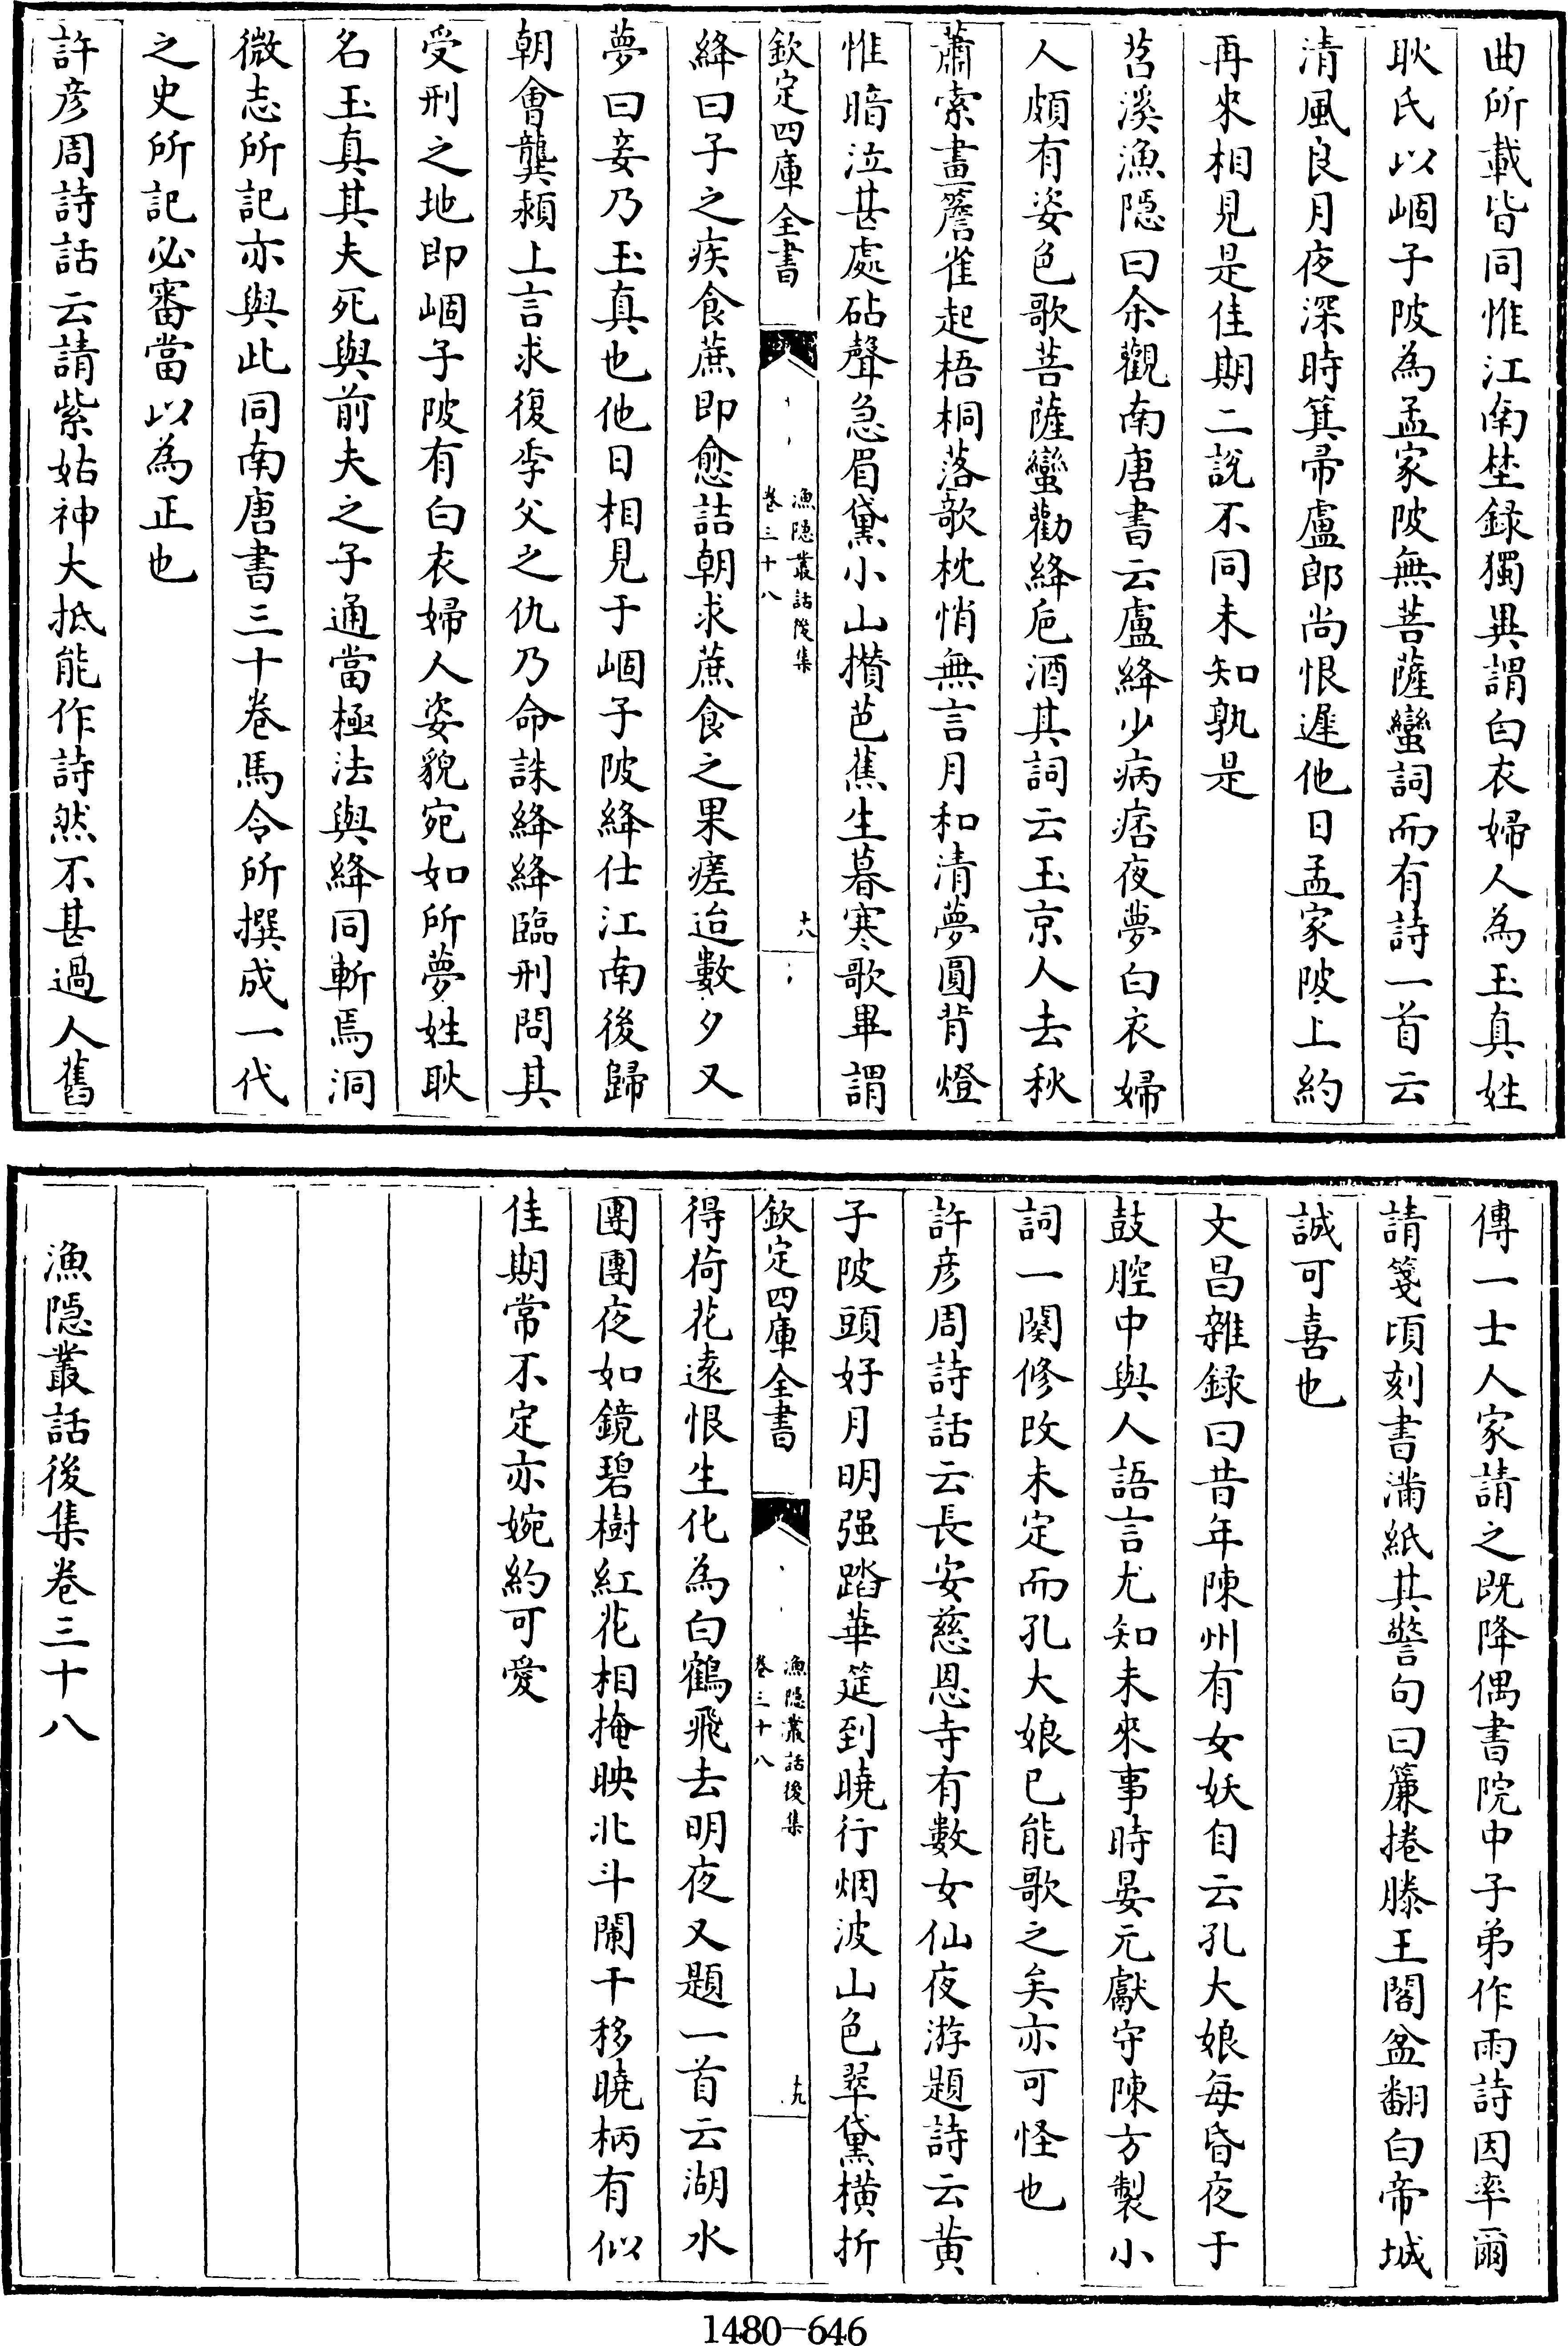 曲所載皆同惟江南埜錄獨異謂白衣婦人為玉真姓
耿氏以崓子陂為孟家陂無菩薩蠻詞而有詩一首云
清風良月夜深時箕帚盧郎尚恨遲他日孟家陂上約
再來相見是佳期二說不同未知孰是
苕溪漁隠曰余觀南唐書云盧絳少病痁夜夢白衣婦
人頗有姿色歌菩薩蠻勸絳巵酒其詞云玉京人去秋
蕭索畫簷雀起梧桐落欹枕悄無言月和清夢圓背燈
惟暗泣甚處砧聲急眉黛小山攅芭蕉生暮寒歌畢謂
欽定四庫全書
漁隠叢話後集
卷三十八
十八
絳曰子之疾食蔗即愈詰朝求蔗食之果瘥迨數夕又
夢曰妾乃玉真也他日相見于崓子陂絳仕江南後歸
朝會龔穎上言求復季父之仇乃命誅絳絳臨刑問其
受刑之地即崓子陂有白衣婦人姿貌宛如所夢姓耿
名玉真其夫死與前夫之子通當極法與絳同斬焉洞
微志所記亦與此同南唐書三十卷馬令所撰成一代
之史所記必審當以為正也
許彦周詩話云請紫姑神大抵能作詩然不甚過人舊
傳一士人家請之既降偶書院中子弟作雨詩因率爾
請箋頃刻書滿紙其警句曰簾捲滕王閣盆翻白帝城
誠可喜也
文昌雜録曰昔年陳州有女妖自云孔大娘每昏夜于
鼓腔中與人語言尤知未來事時晏元獻守陳方製小
詞一闋修改未定而孔大娘已能歌之矣亦可怪也
許彦周詩話云長安慈恩寺有數女仙夜游題詩云黄
子陂頭好月明强踏華筵到曉行烟波山色翠黛横折
欽定四庫全書
漁隠叢話後集
卷三十八
十九
得荷花遠恨生化為白鶴飛去明夜又題一首云湖水
團團夜如鏡碧樹紅花相掩映北斗闌干移曉柄有似
佳期常不定亦婉約可愛
漁隠叢話後集卷三十八
1480-646